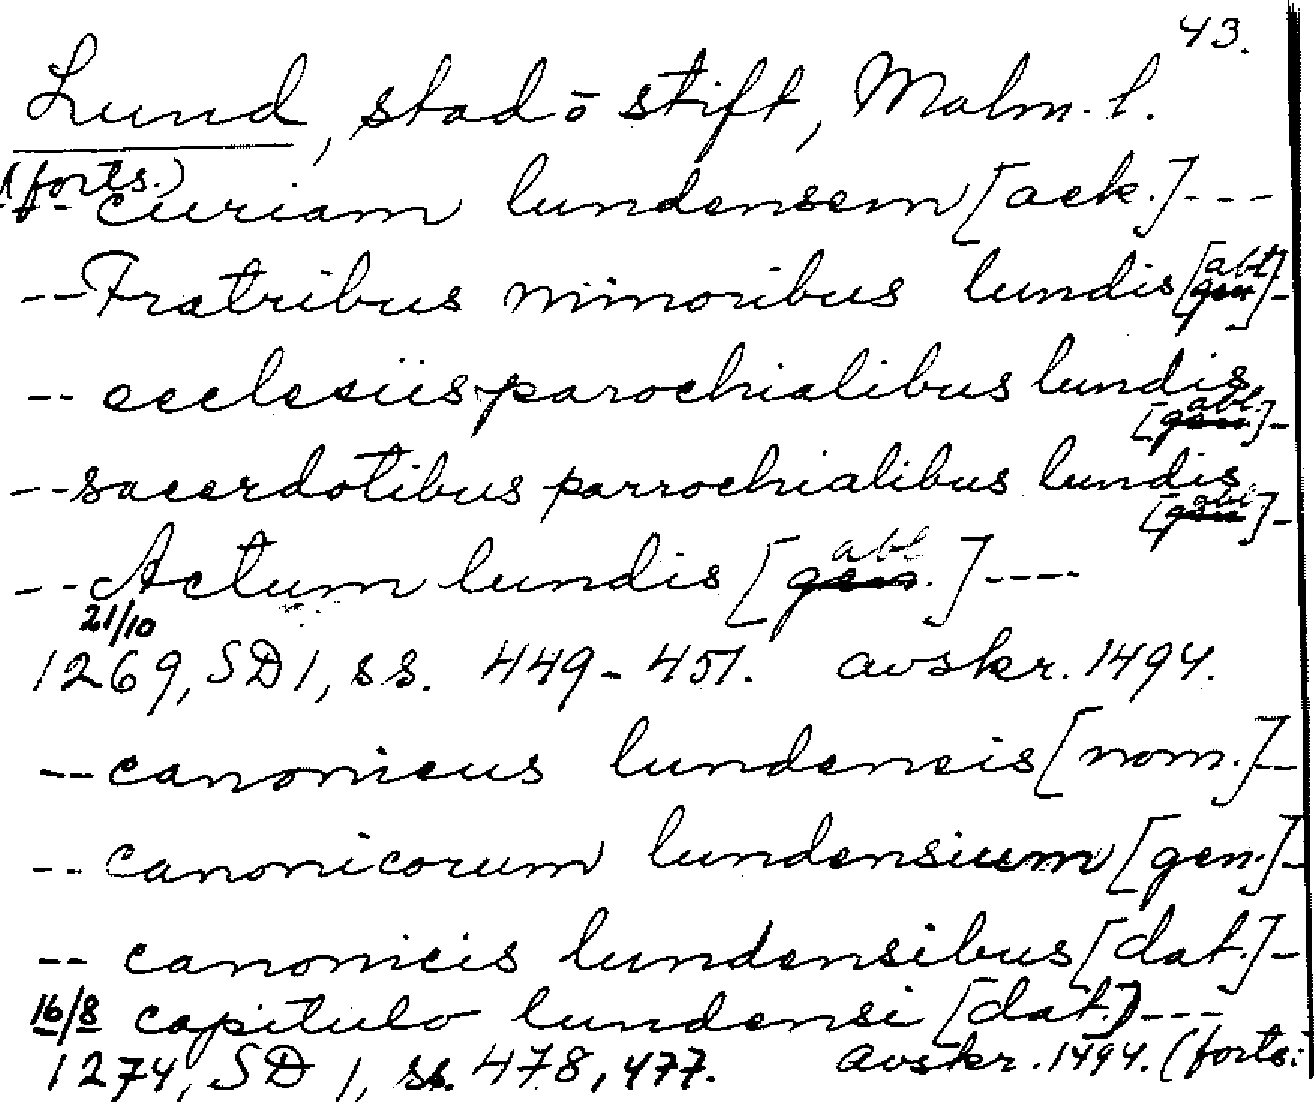 43.
Lund, stad o stift, Malm. l.
(forts.)
-- curiam lundensem [ack.]---
-- Fratribus minoribus lundis [gen abl]-
-- ecclesiis parochialibus lundis
[gen. abl.]-
-- sacerdotibus parrochialibus lundis
[gen abl]-
-- Actum lundis [gen. abl]----
21/10
1269, SD 1, ss. 449-451. avskr. 1494.
-- canonicus lundensis [nom.]-
-- canonicorum lundensium [gen.]-
-- canonicis lundensibus [dat.]-
16/8 capitulo lundensi [dat.]---
1274, SD 1, ss. 478, 477. avskr. 1494. (forts.